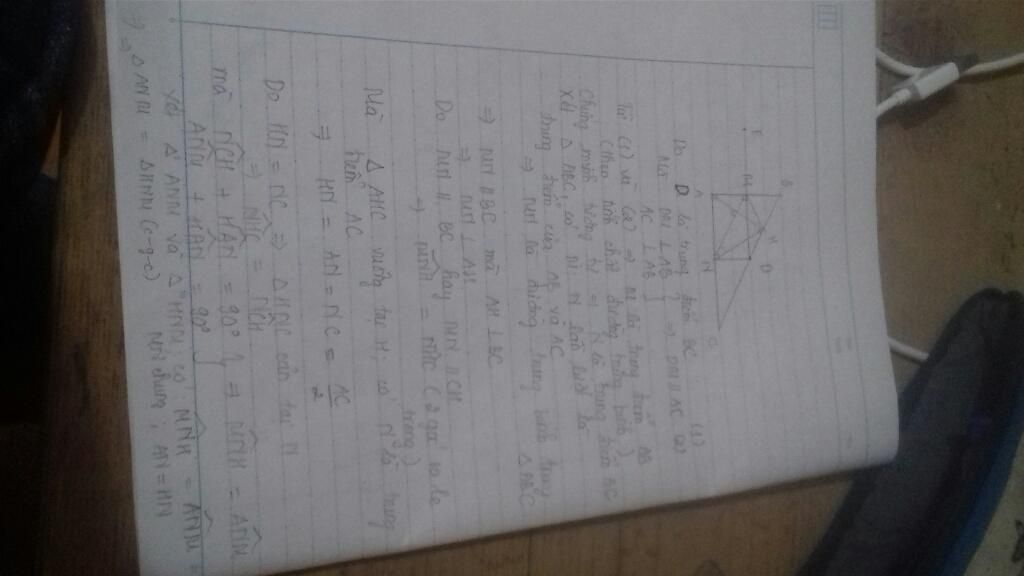 B
E
M
H
D
A
N
C
Do D là trung điểm BC (1)
Mà DM ⊥ AB
AC ⊥ AB } ⇒ DM // AC (2)
Từ (1) và (2) ⇒ M là trung điểm AB
(theo tính chất đường trung bình).
Chứng minh tương tự ⇒ N là trung điểm AC
Xét Δ ABC, có M, N lần lượt là
trung điểm của AB và AC
⇒ MN là đường trung bình trong Δ ABC
⇒ MN // BC mà AH ⊥ BC
⇒ MN ⊥ AH
Do MN // BC hay MN // CH
⇒ = (2 góc so le
trong)
Mà Δ AHC vuông tại H, có N là trung
điểm AC
⇒ HN = AN = NC = AC/2
Do HN = NC ⇒ Δ HNC cân tại N
⇒ NHC = NCH
mà NCH + HAN = 90°
ANM + HAN = 90° } ⇒ MNH = ANM
Xét Δ ANM và Δ HNM, có MNH = ANM
MN chung, AN = HN
⇒ Δ ANM = Δ HNM (c-g-c)